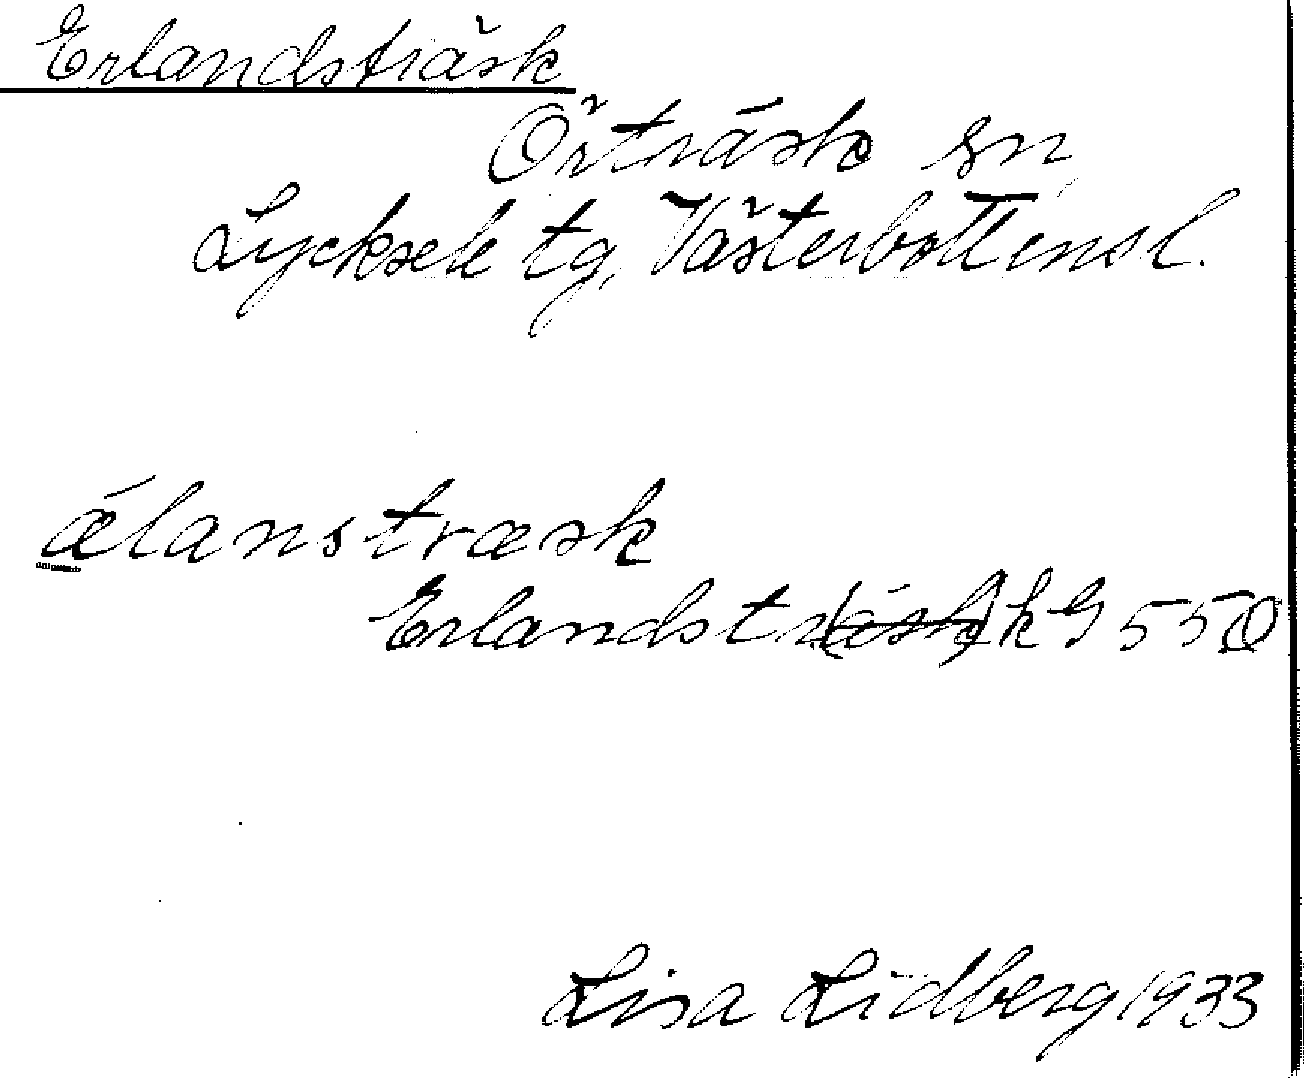 Erlandsträsk
Örträsk sn,
Lycksele tg, Västerbottensl.
ǽlanstræsk
Erlandstr(äsk) k G 550
Lisa Lidberg 1933